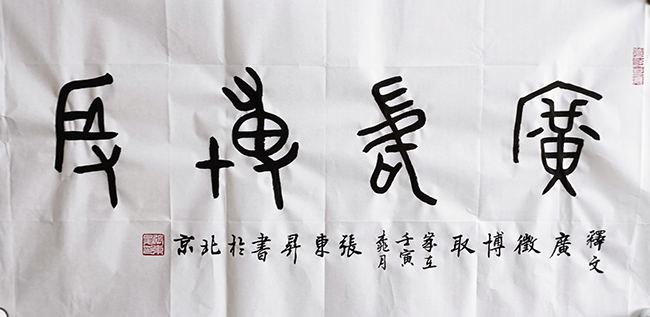 廣徵博取
釋文廣徵博取歲在壬寅桃月張東昇書於北京